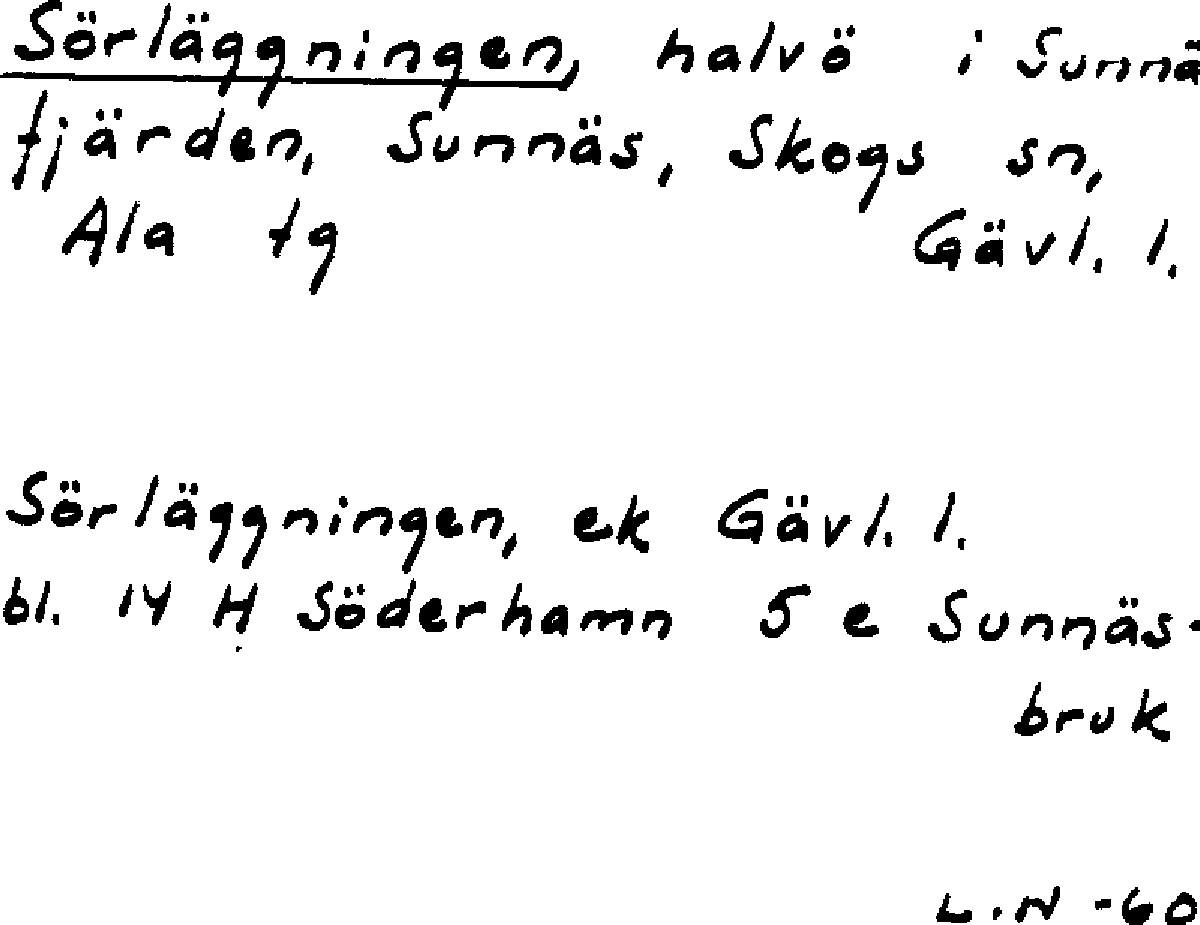 Sörläggningen, halvö i Sunnä
fjärden, Sunnäs, Skogs sn,
Ala tg Gävl. l.
Sörläggningen, ek Gävl. l.
bl. 14 H Söderhamn 5 e Sunnäs-
bruk
L.N -60